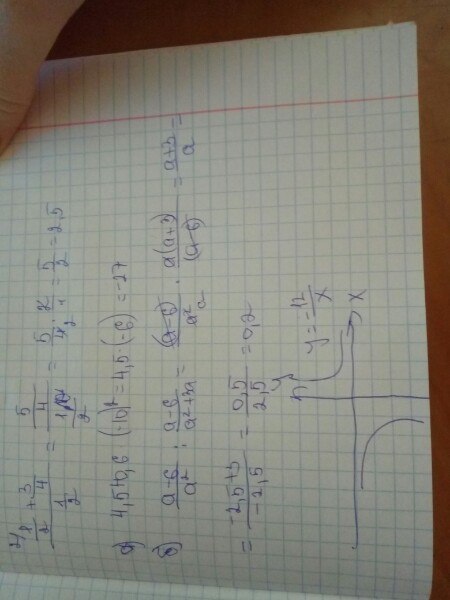 2/ 1/2 + 3/4 / 1/2 = 5/4 / 1/2 = 5/4 · 2/1 = 5/2 = 2,5
а) 4,5+0,6 (-10) = 4,5·(-6) = -27
б) a-6/a² : a-6/a²+3a = (a-6)/a² · a(a+3)/(a-6) = a+3/a =
= -2,5+3/-2,5 = 0,5/2,5 = 0,2
y
y = -12/x
x